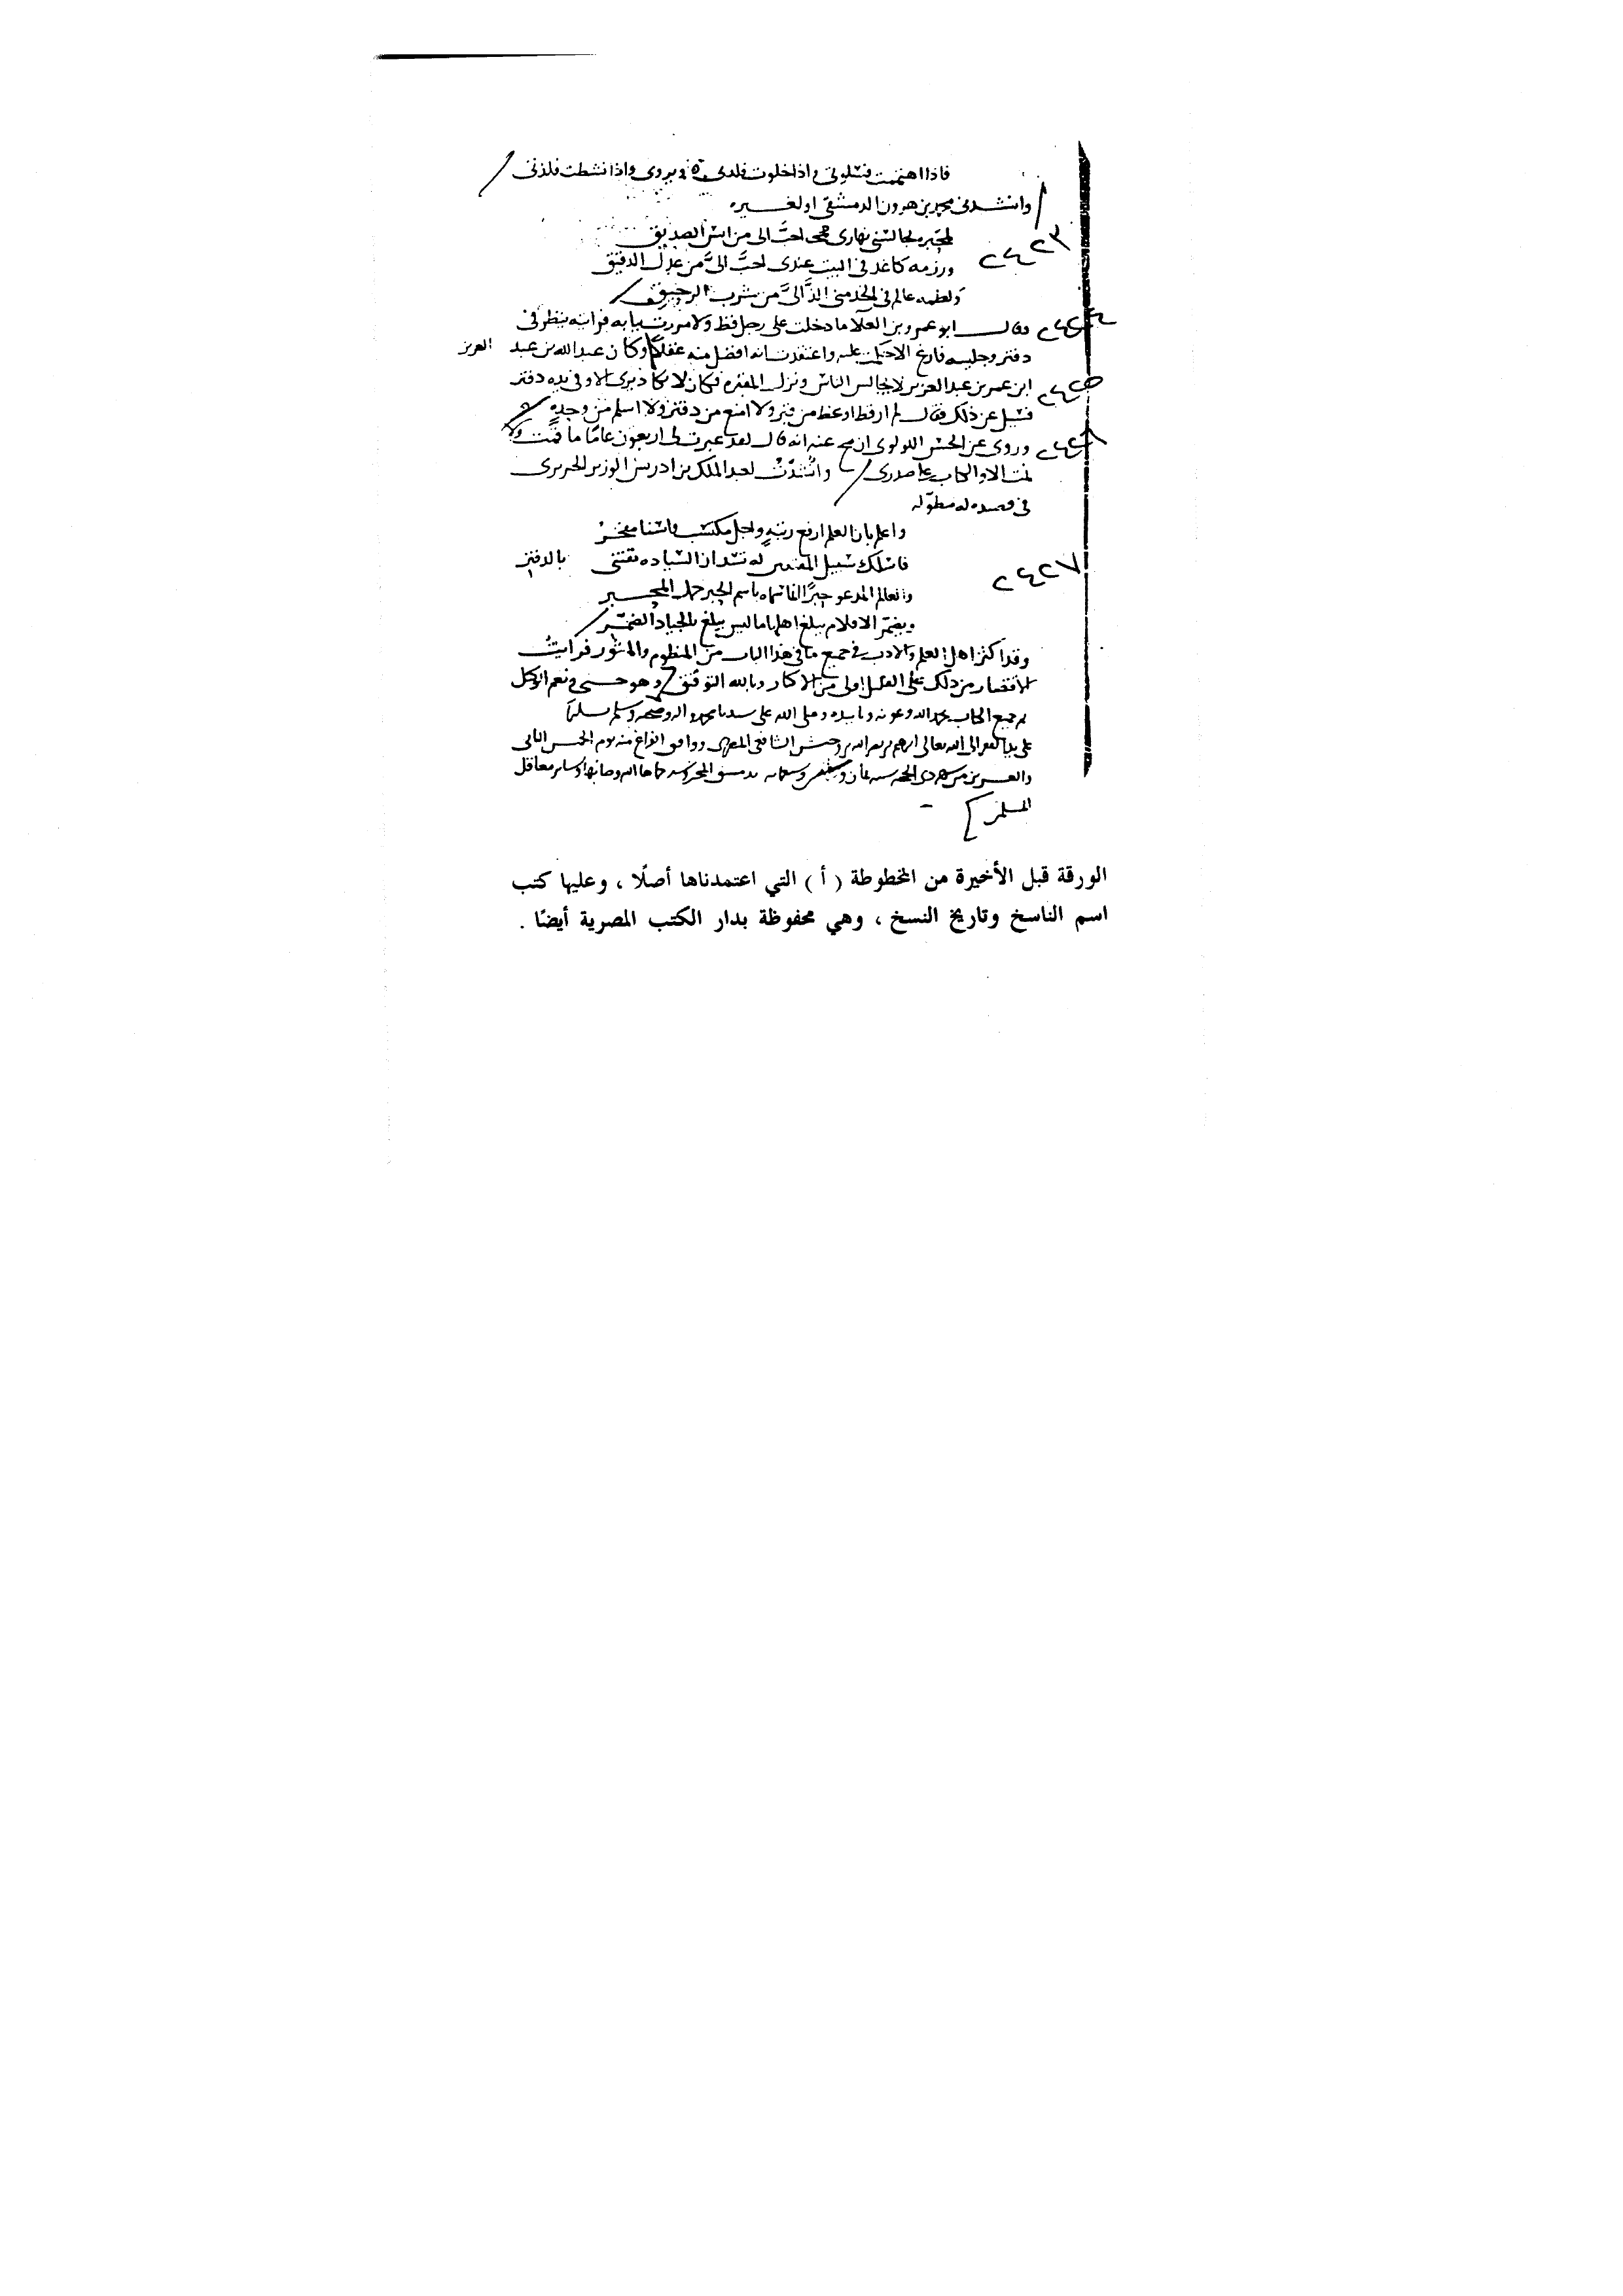 فاذا اهتممت فسلوتي واذا خلوت فلذتي واذا نشطت فلذتي
وانشدني محمد بن هرون الدمشقي او لغيره
٢٤٢٣
لمحبرة تجالسني نهاري احب الى من انس الصديق
ورزمه كاغد في البيت عندي احبَّ اليَّ من عدل الدقيق
ولطمه عالم في الخد مني الذّ اليَّ من شرب الرحيق
٢٤٢٤
وقال ابو عمرو بن العلا ما دخلت على رجل قط ولا مررت ببابه فرايته ينظر في
دفتر وجليسه فارغ الا حكمت عليه واعتقدت انه افضل منه عقلا وكان عبد الله بن عبد العزيز
٢٤٢٥
ابن عمر بن عبد العزيز لا يجالس الناس ونزل المقبره فكان لا يكاد يرى الا وفي يده دفتر
فسيل عن ذلك فقال لم ار قط اوعظ من قبر ولا امنع من دفتر ولا اسلم من وحده
٢٤٢٦
وروى عن الحسن اللولوي ان صح عنه انه قال لقد غبرت لي اربعون عامًا ما قمت ولا
نمت الا والكتاب على صدري وانشدت لعبد الملك بن ادريس الوزير الجزيري
في قصيده له مطوله
٢٤٢٧
واعلم بان العلم ارفع رتبةٍ واجل مكتسب واسنا مفخر
فاسلك سبيل المقتنين له تسد ان السياده تقتنى بالدفتر
والعالم المدعو حبرًا انما سماه باسم الحبر حمل المحبر
وبضمر الاقلام يبلغ اهلها ما ليس يبلغ بالجياد الضمّر
وقد اكثر اهل العلم والادب في جميع ما في هذا الباب من المنظوم والمنثور فرايت
الاقتصار من ذلك على القليل اولى من الاكثار وبالله التوفيق وهو حسبي ونعم الوكيل
تم جميع الكتاب بحمد الله وعونه وتاييده وصلى الله على سيدنا محمد واله وصحبه وسلم تسليمًا
على يد الفقير الى الله تعالى ابرهيم بن الشافعي ووافق الفراغ منه يوم الخميس الثاني
والعشرين من شهر ذي الحجه سنه ثمان وسبعمايه بدمشق المحروسه حماها الله وصانها وساير معاقل
المسلمين
الورقة قبل الأخيرة من المخطوطة ( أ ) التي اعتمدناها أصلًا ، وعليها كتب
اسم الناسخ وتاريخ النسخ ، وهي محفوظة بدار الكتب المصرية أيضًا .